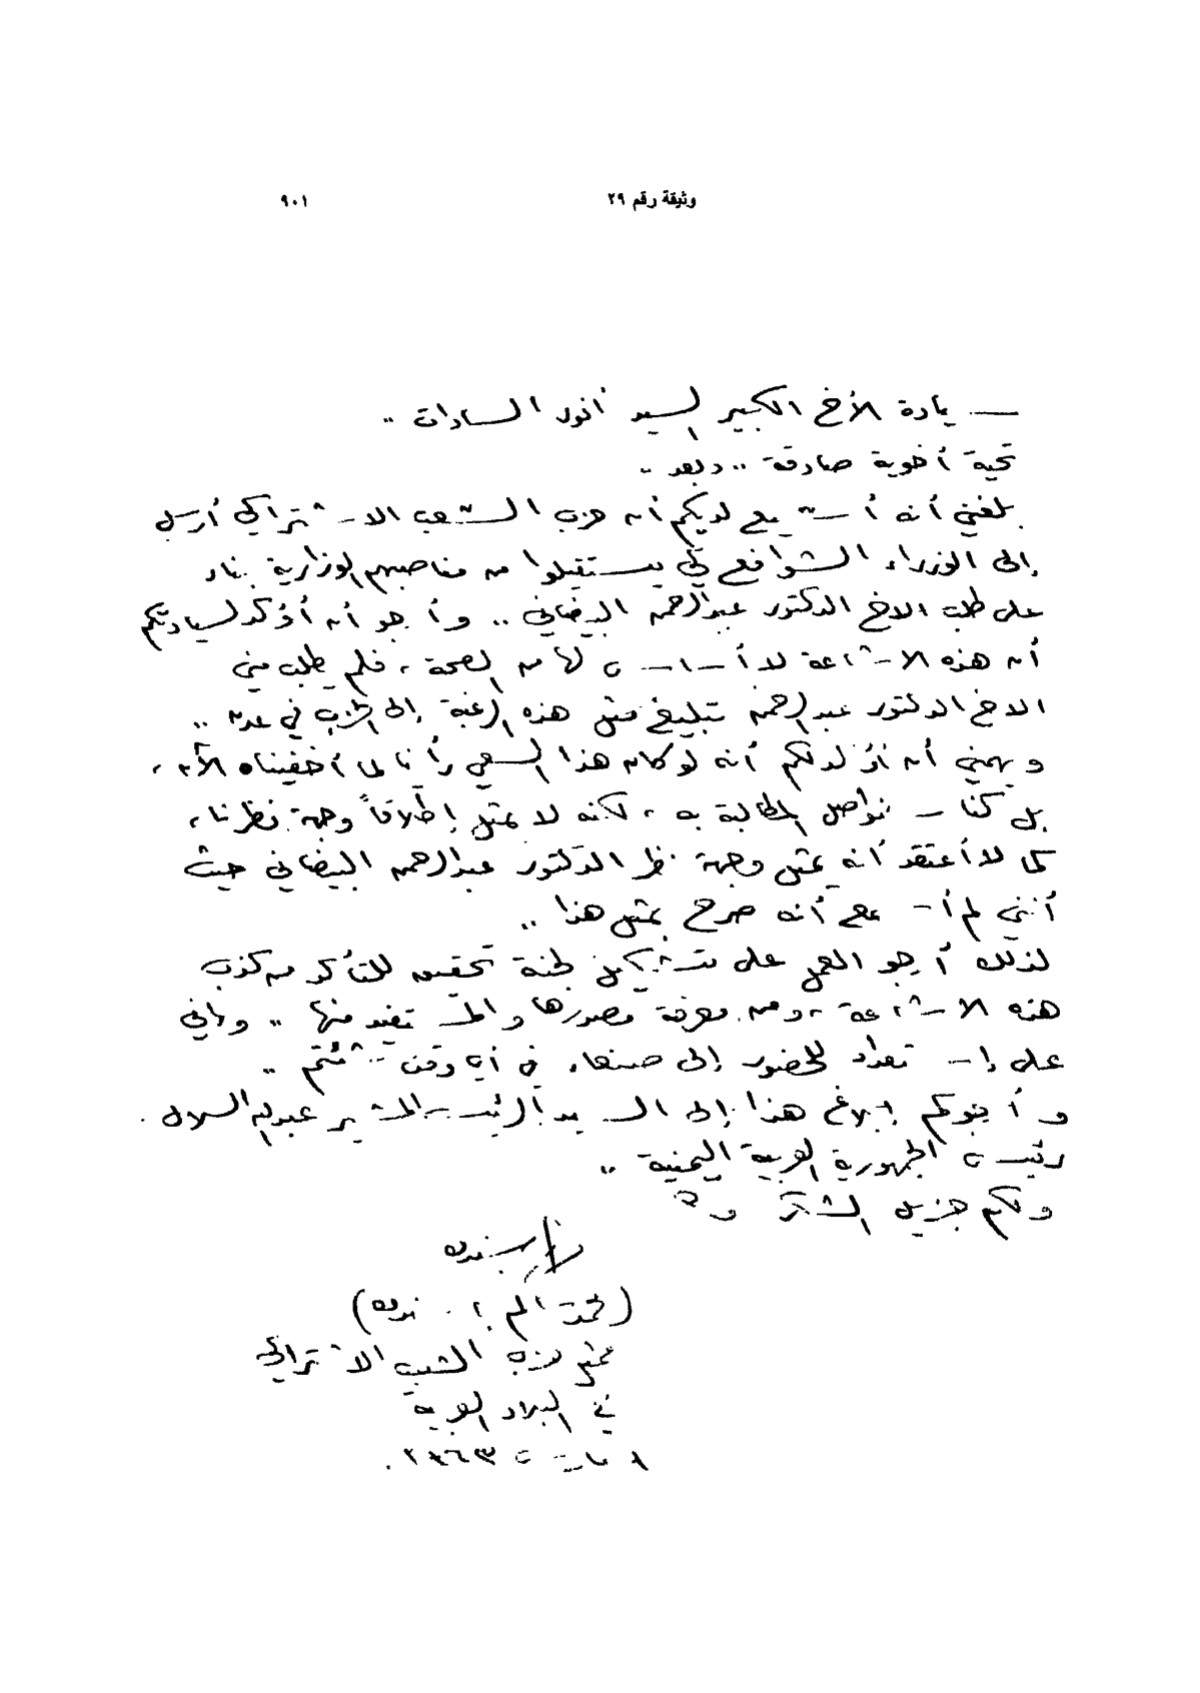 وثيقة رقم ٢٩
٩٠١
سيادة الأخ الكبير السيد أنور السادات ..
تحية أخوية صادقة .. وبعد ..
بلغني أنه أشيع لديكم أن حزب الشعب الاشتراكي أرسل
إلى الوزراء الشوافع لكي يستقيلوا من مناصبهم الوزارية بناء
على طلب الاخ الدكتور عبدالرحمن البيضاني .. وأرجو أن أؤكد لسيادتكم
أن هذه الاشاعة لا أساس لها من الصحة ، فلم يطلب مني
الاخ الدكتور عبدالرحمن تبليغ مثل هذه الرغبة إلى الحزب في عدن ..
ويهمني أن أؤكد لكم أنه لو كان هذا السعي رأينا لما أخفيناه الآن ،
بل كنا نواصل المطالبة به ، لكنه لا يمثل إطلاقاً وجهة نظرنا ،
كما لا أعتقد أنه يمثل وجهة نظر الدكتور عبدالرحمن البيضاني حيث
أنني لم أسمع أنه صرح بمثل هذا ..
لذلك أرجو العمل على تشكيل لجنة تحقيق للتأكد من كذب
هذه الاشاعة ، ومن معرفة مصدرها والمستفيد منها .. وإني
على إستعداد للحضور إلى صنعاء في أي وقت شئتم ..
وأرجوكم إبلاغ هذا إلى السيد الرئيس المشير عبدالله السلال
رئيس الجمهورية العربية اليمنية ..
ولكم جزيل الشكر
(محمد سالم باسندوه)
ممثل حزب الشعب الاشتراكي
في البلاد العربية
مارس ١٩٦٣